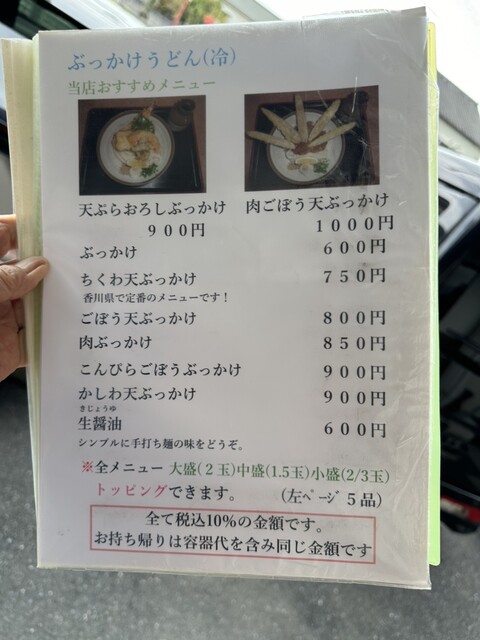 ぶっかけうどん(冷)
当店おすすめメニュー
天ぷらおろしぶっかけ
900円
肉ごぼう天ぶっかけ
1000円
ぶっかけ 600円
ちくわ天ぶっかけ 750円
香川県で定番のメニューです！
ごぼう天ぶっかけ 800円
肉ぶっかけ 850円
こんぴらごぼうぶっかけ 900円
かしわ天ぶっかけ 900円
きじょうゆ
生醤油 600円
シンプルに手打ち麺の味をどうぞ。
※全メニュー 大盛(2玉)中盛(1.5玉)小盛(2/3玉)
トッピングできます。 (左ﾍﾟｰｼﾞ 5品)
全て税込10%の金額です。
お持ち帰りは容器代を含み同じ金額です